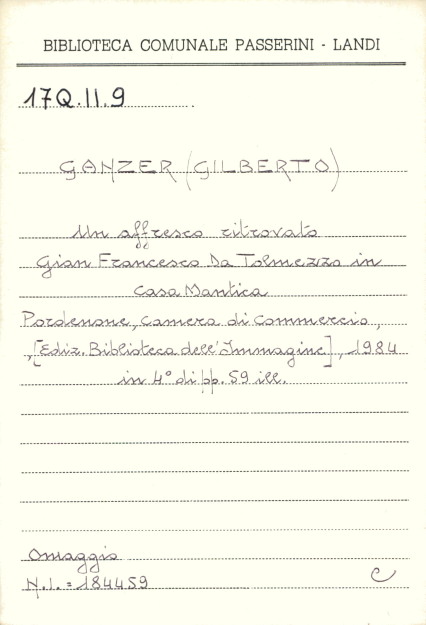 BIBLIOTECA COMUNALE PASSERINI - LANDI
17Q.II.9
GANZER (GILBERTO)
Un affresco ritrovato
di
Gian Francesco Da Tolmezzo in
Casa Mantica
Pordenone, Camera di Commercio,
,[Ediz. Biblioteca dell'Immagine], 1984
in 4° di pp. 59 ill.
Omaggio
N.I. = 184459
C